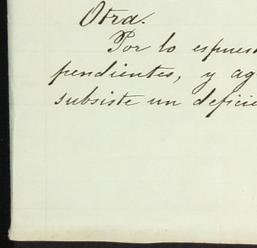 Otra.
Por lo espues
pendientes, y ag
subsiste un defici